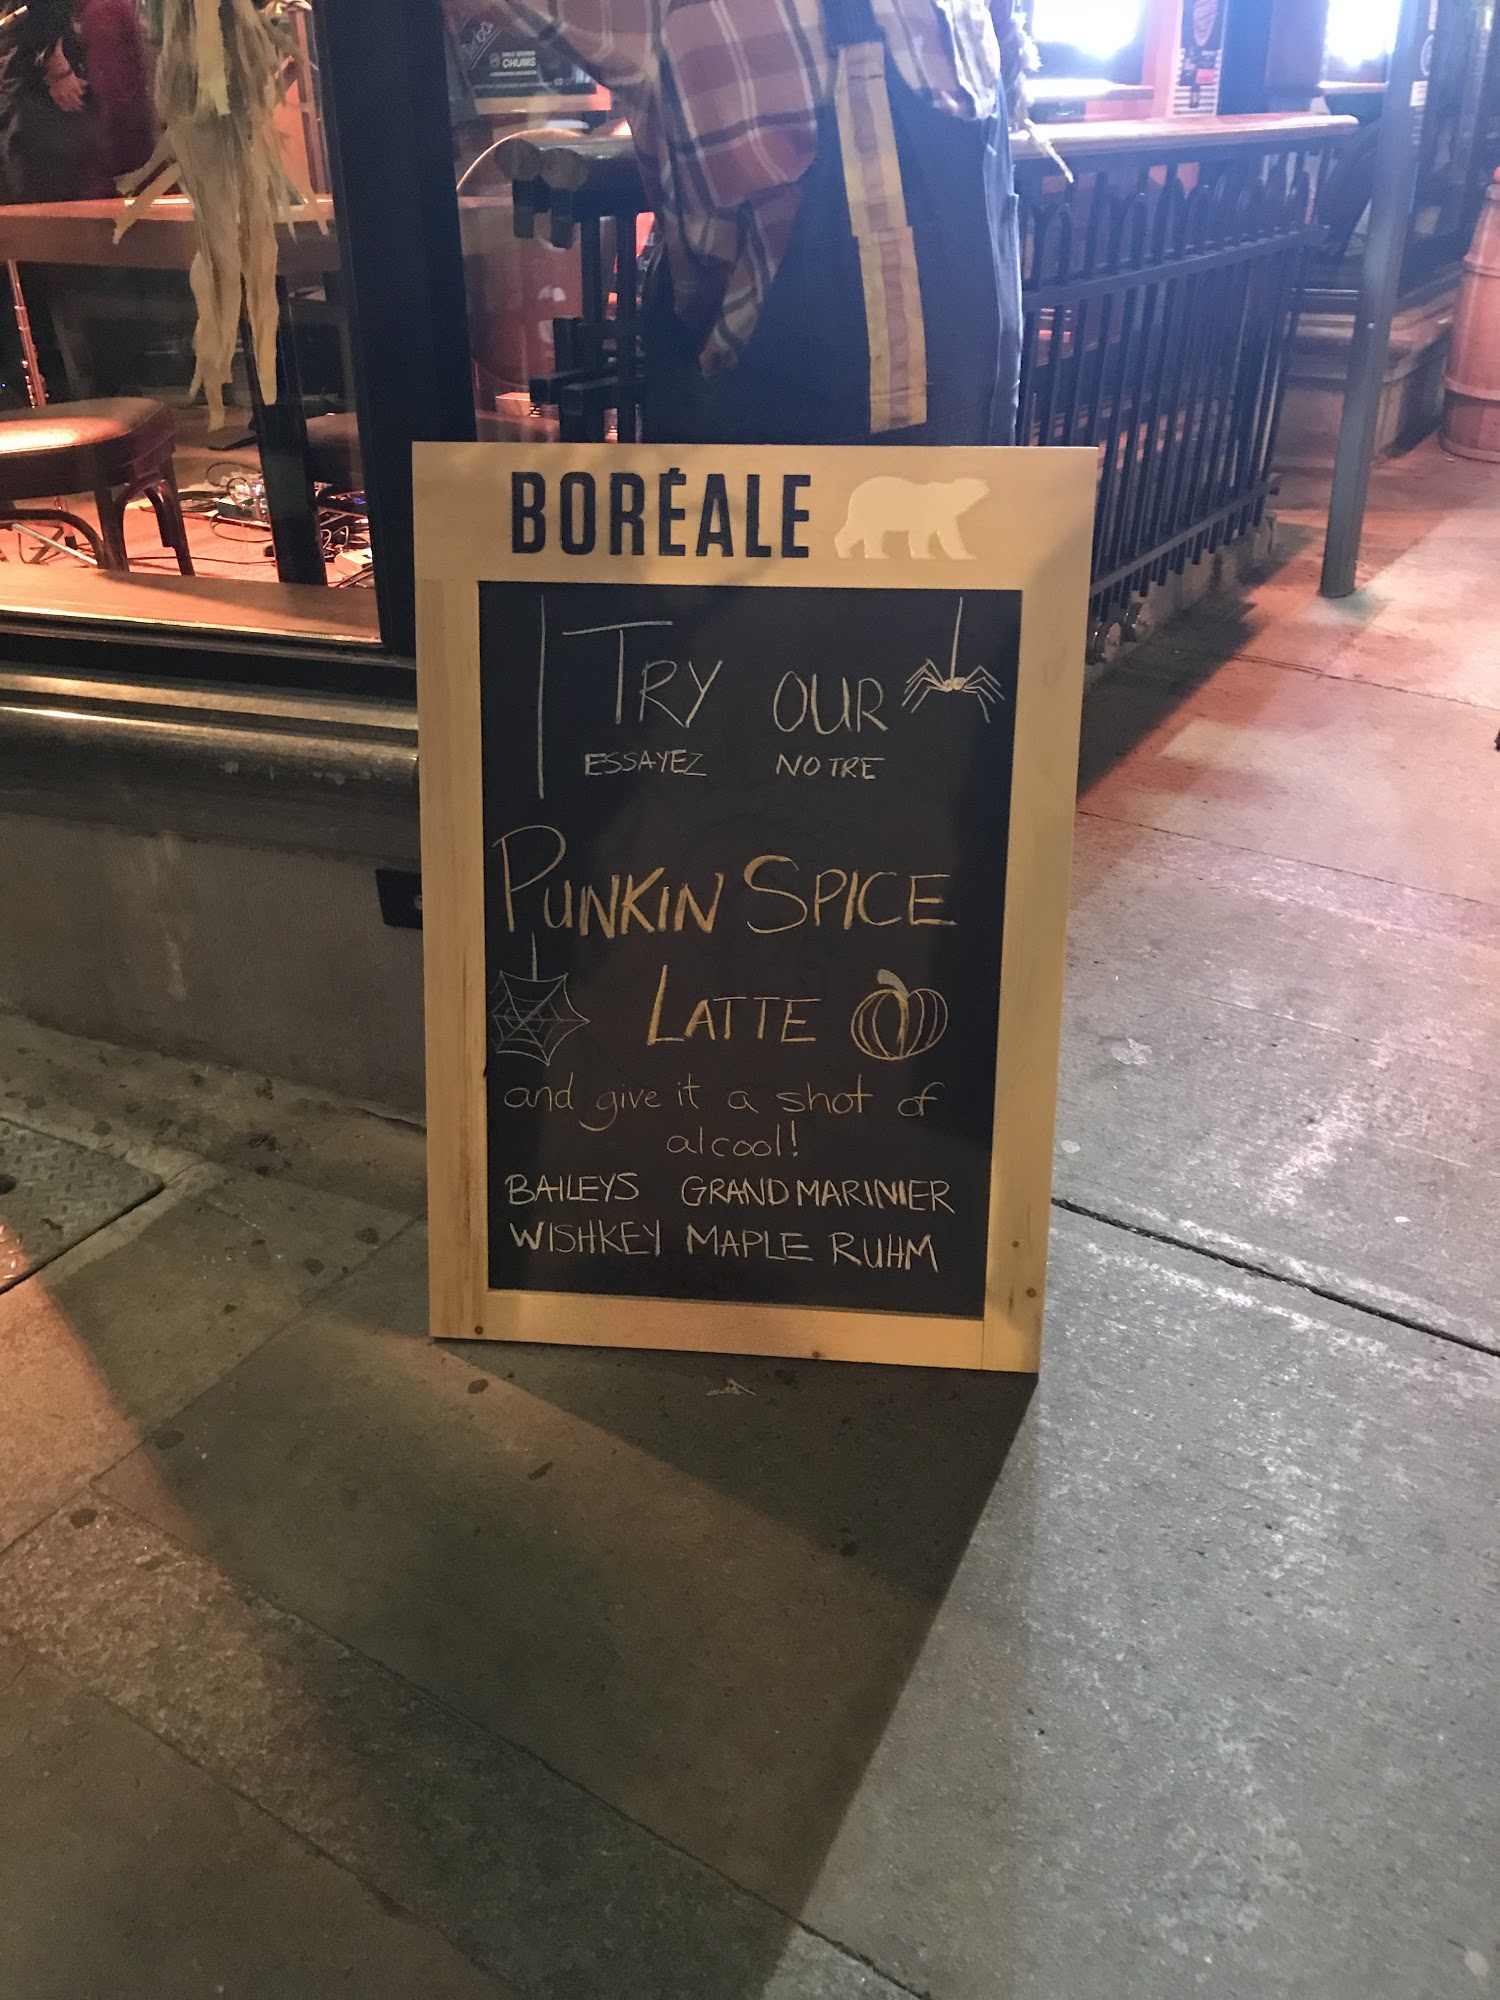 CHUMS
BORÉALE
TRY OUR
ESSAYEZ NOTRE
PUNKIN SPICE
LATTE
and give it a shot of
alcool!
BAILEYS GRAND MARINIER
WISHKEY MAPLE RUHM